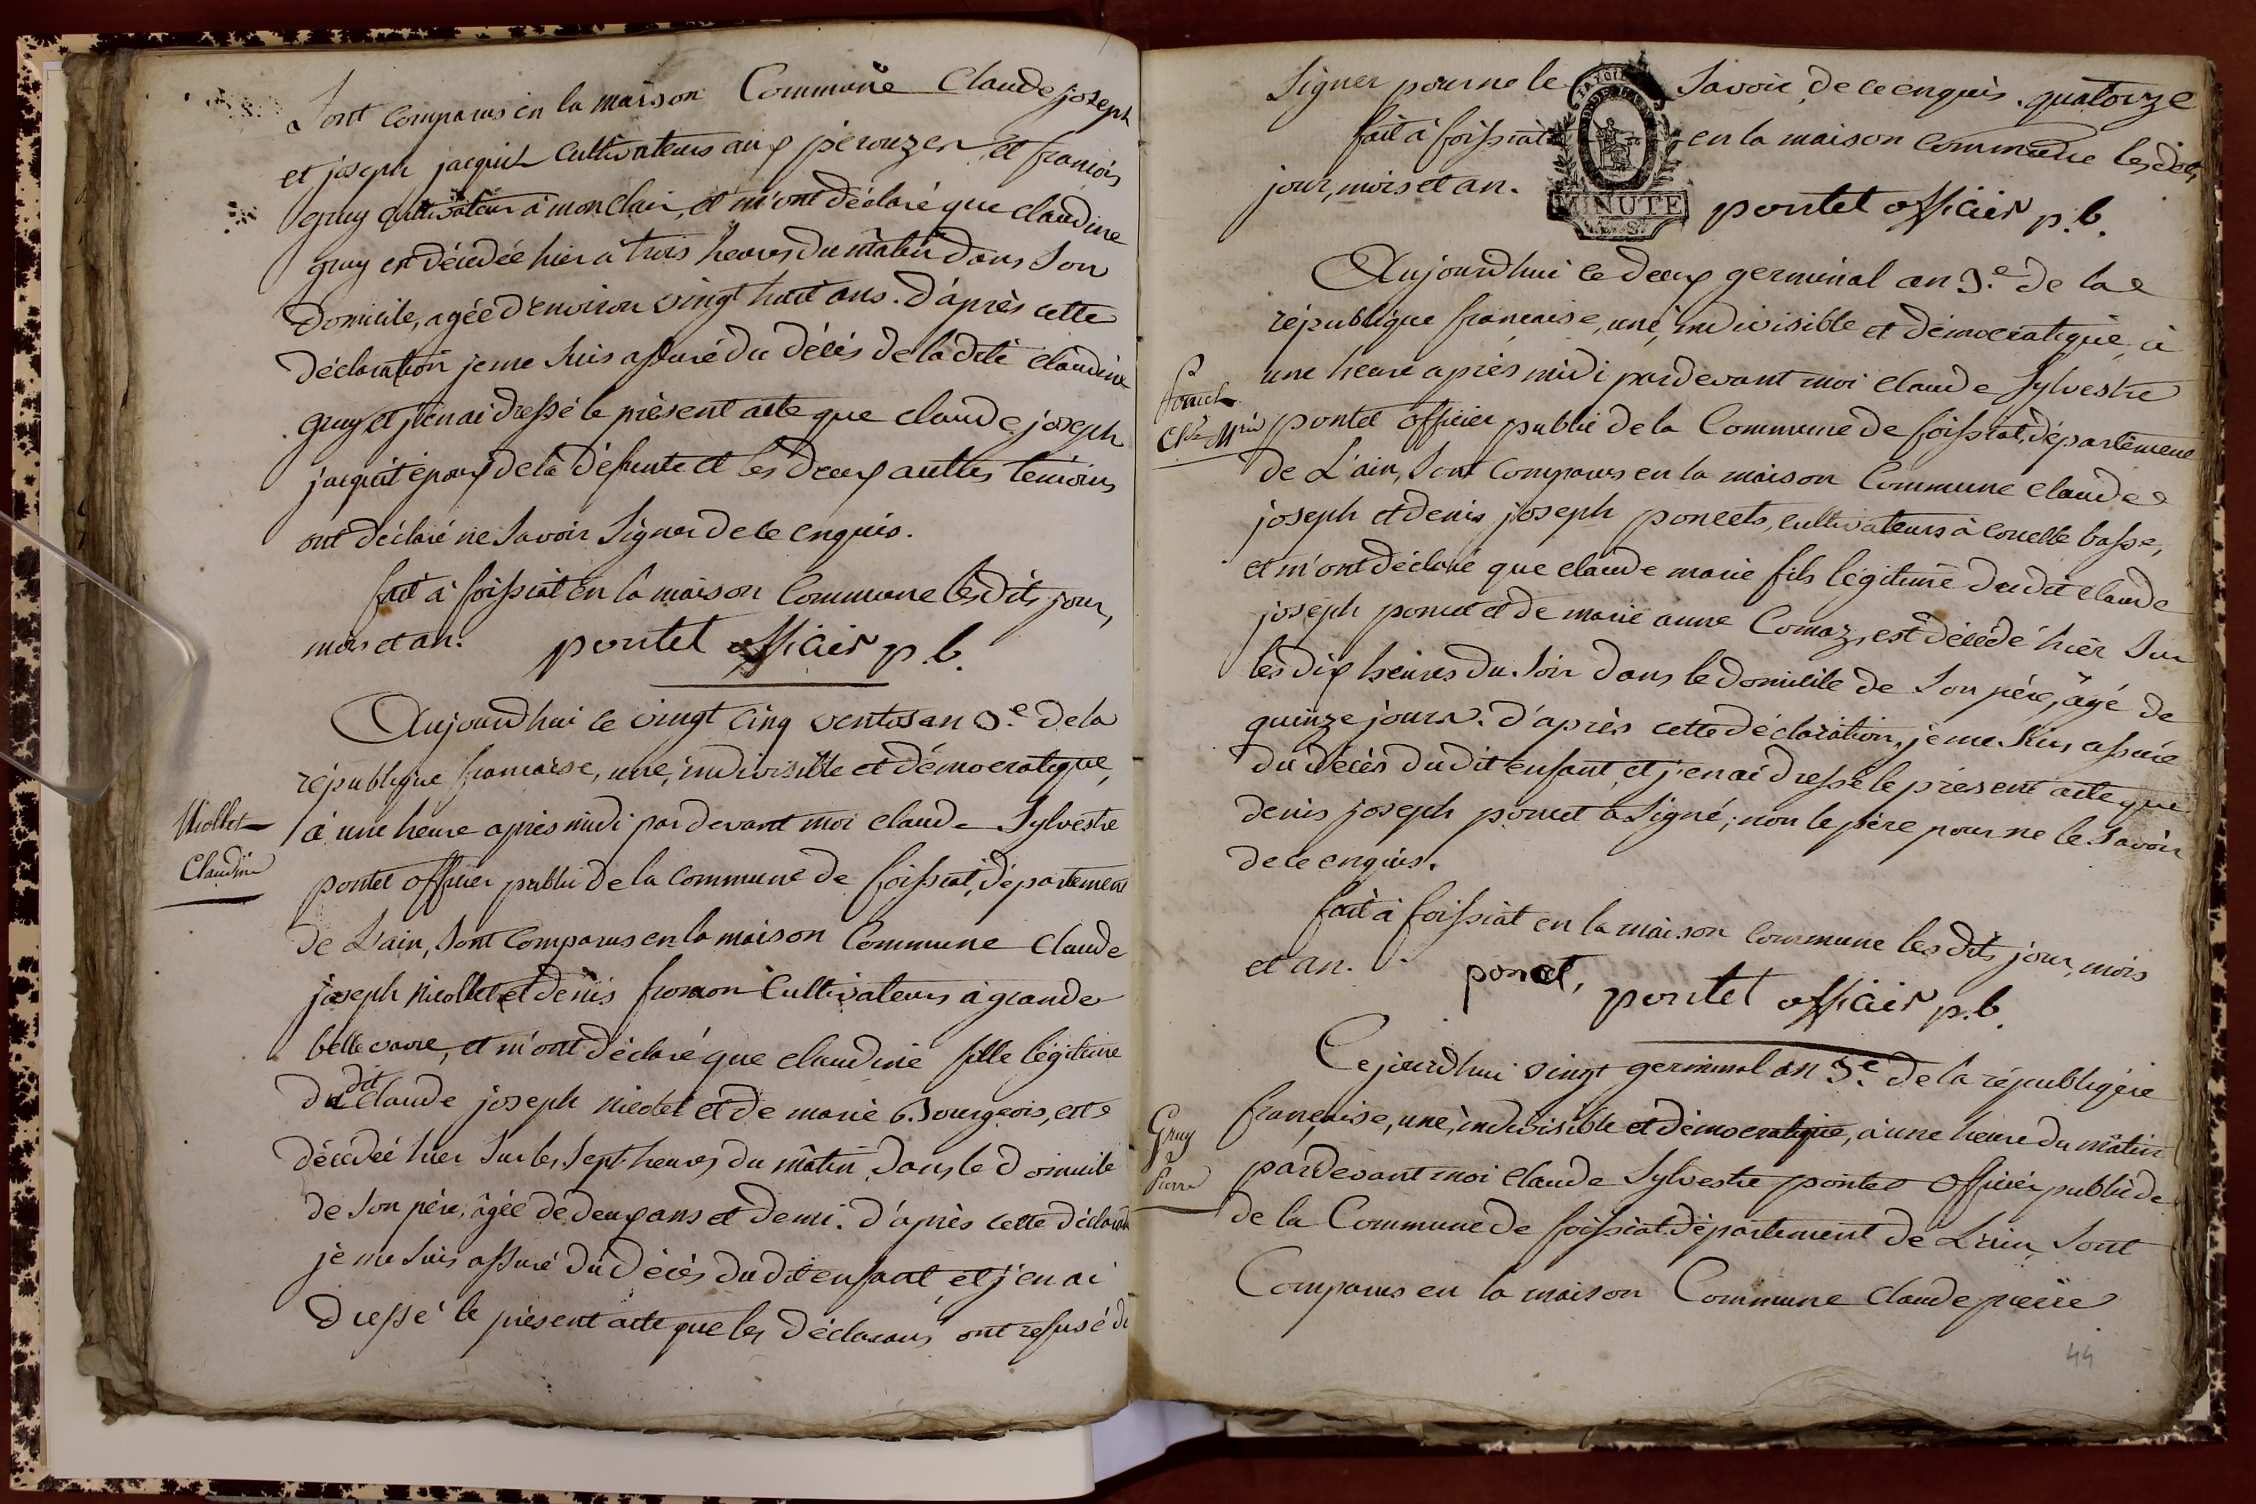 Sont comparus en la maison Commune Claude joseph
et joseph jacquit cultivateurs aux pérouzes et francois
gruy cultivateur à monclair, et m'ont déclaré que claudine
gruy est décédée hier à trois heures du mâtin dans son
domicile, agée d'environ vingt huit ans. d'après cette
déclaration je me suis assuré du décès de la dite claudine
gruy et j'en ai dressé le présent acte que claude joseph
jacquit époux de la défunte et les deux autres témoins
ont déclaré ne savoir signer de ce enquis.
fait à foissiat en la maison Commune les dits jour,
mois et an. pontet officier p.b.
Aujourdhui le vingt cinq ventos an 3.e de la
république francaise, une, indivisible et démocratique,
à une heure après midi par devant moi claude Sylvestre
Niollet
Claudine
pontet officier public de la commune de foissiat, département
de L'ain, sont comparus en la maison Commune Claude
joseph Nicollet et denis froson cultivateurs à grande
bellevavre, et m'ont déclaré que claudine fille légitime
du dit claude joseph nicolet et de marie Bourgeois, est
décédée hier sur les sept heures du mâtin dans le domicile
de son père, âgée de deux ans et demi. d'après cette déclaration
je me suis assuré du décès du dit enfant, et j'en ai
dressé le présent acte que les déclarans ont refusé de
signer pour ne le savoir de ce enquis. quatorze
fait à foissiat en la maison commune les dits
jour, mois et an.
MINUTE
pontet officier p.b.
Aujourdhui le deux germinal an 3.e de la
république française, une, indivisible et démocratique à
une heure après midi pardevant moi claude Sylvestre
Poncet
Cl.de M.rie
pontet officier public de la Commune de foissiat, département
de L'ain, sont comparus en la maison Commune claude
joseph et denis joseph poncets, cultivateurs à coucelle basse,
et m'ont déclaré que claude marie fils légitime du dit claude
joseph poncet et de marie anne Comaz, est décédé hier sur
les dix heures du soir dans le domicile de son père, âgé de
quinze jours. d'après cette déclaration, je me suis assuré
du décès du dit enfant, et j'en ai dressé le présent acte que
denis joseph poncet a signé; non le père pour ne le savoir
de ce enquis.
fait à foissiat en la maison commune les dits jour, mois
et an. poncet, pontet officier p.b.
Cejourdhui vingt germinal an 3.e de la république
française, une, indivisible et démocratique, à une heure du mâtin
Gruy
Pierre
pardevant moi claude Sylvestre pontet officier public de
de la Commune de foissiat département de L'ain, sont
Comparus en la maison Commune claude pierre
44